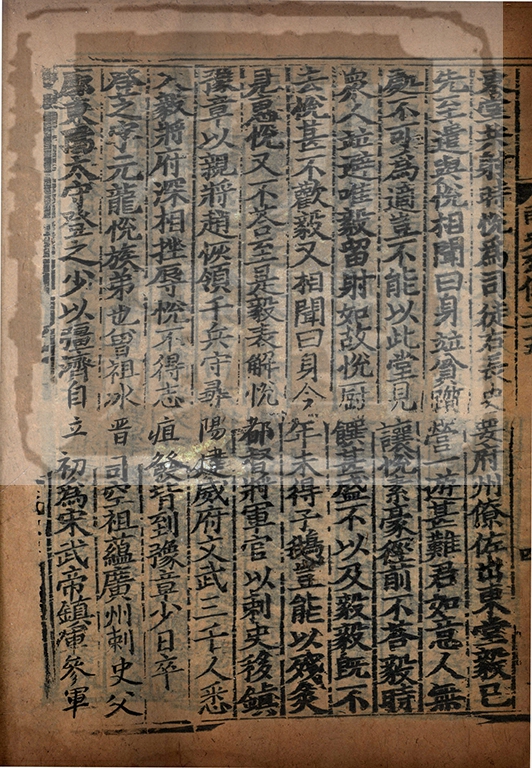 東堂共射時悅為司徒右長史要府州僚佐出東堂毅已
先至遣與悅相聞曰身並貧躓營一遊甚難君如意人無
處不可為適豈不能以此堂見讓悅素豪徑前不荅毅時
衆人並避唯毅留射如故悅厨饌甚盛不以及毅毅既不
去悅甚不歡毅又相聞曰身今年未得子鵝豈能以殘炙
見惠悅又不荅至是毅表解悅都督將軍官以刺史後鎮
豫章以親將趙恢領千兵守尋陽建威府文武三千人悉
入毅將府深相挫辱悅不得志疽發背到豫章少日卒
登之字元龍悅族弟也曾祖冰晉司空祖蘊廣州刺史父
東太守登之少以彊濟自立初為宋武帝鎮軍參軍